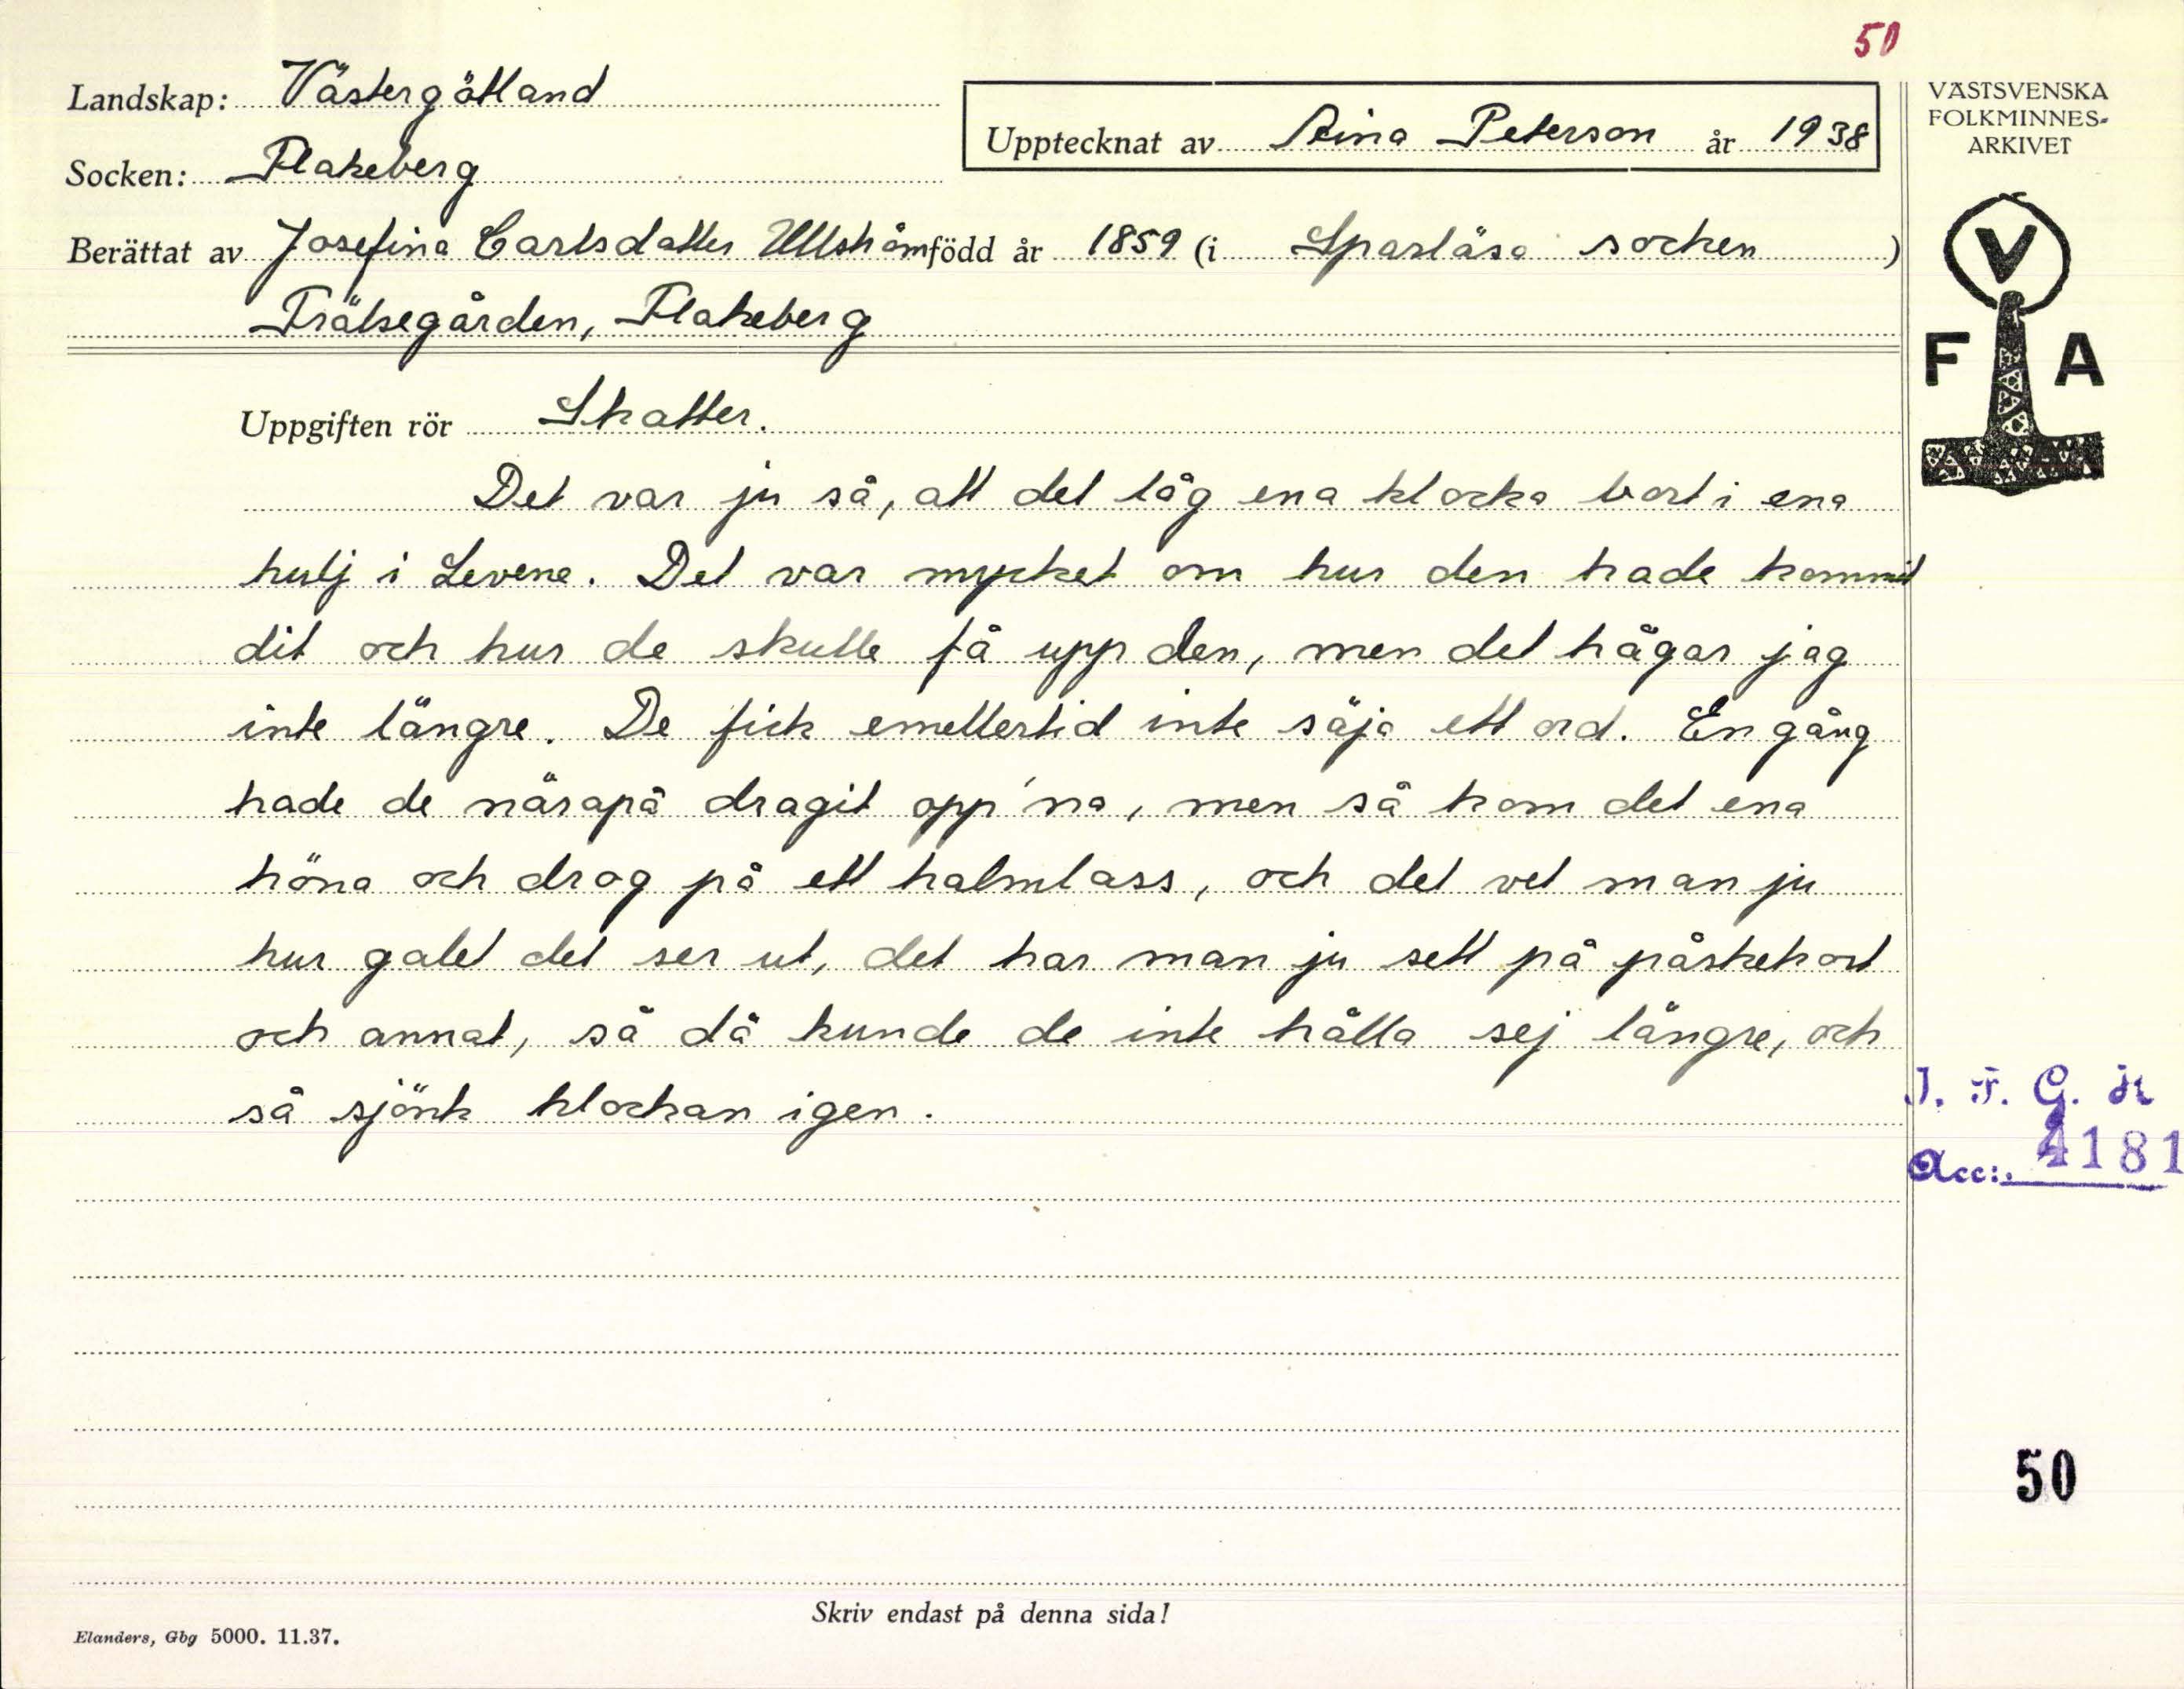 50
Landskap: Västergötland
Upptecknat av Aina Peterson år 1938
VÄSTSVENSKA
FOLKMINNES-
ARKIVET
Socken: Flakeberg
Berättat av Josefina Carlsdatter Ullström född år 1859 (i Sparlösa socken)
Frälsegården, Flakeberg
V
F A
Uppgiften rör Skatter.
Det var ju så, att det låg ena klocka bort i ena
hulj i Levene. Det var mycket om hur den hade kommit
dit och hur de skulle få upp den, men det hågar jag
inte längre. De fick emellertid inte säja ett ord. En gång
hade de närapå dragit opp'na, men så kom det ena
höna och drog på ett halmlass, och det vet man ju
hur galet det ser ut, det har man ju sett på påskekort
och annat, så då kunde de inte hålla sej längre, och
så sjönk klockan igen.
I. F. G. H
Acc:. 4181
50
Skriv endast på denna sida!
Elanders, Gbg 5000. 11.37.